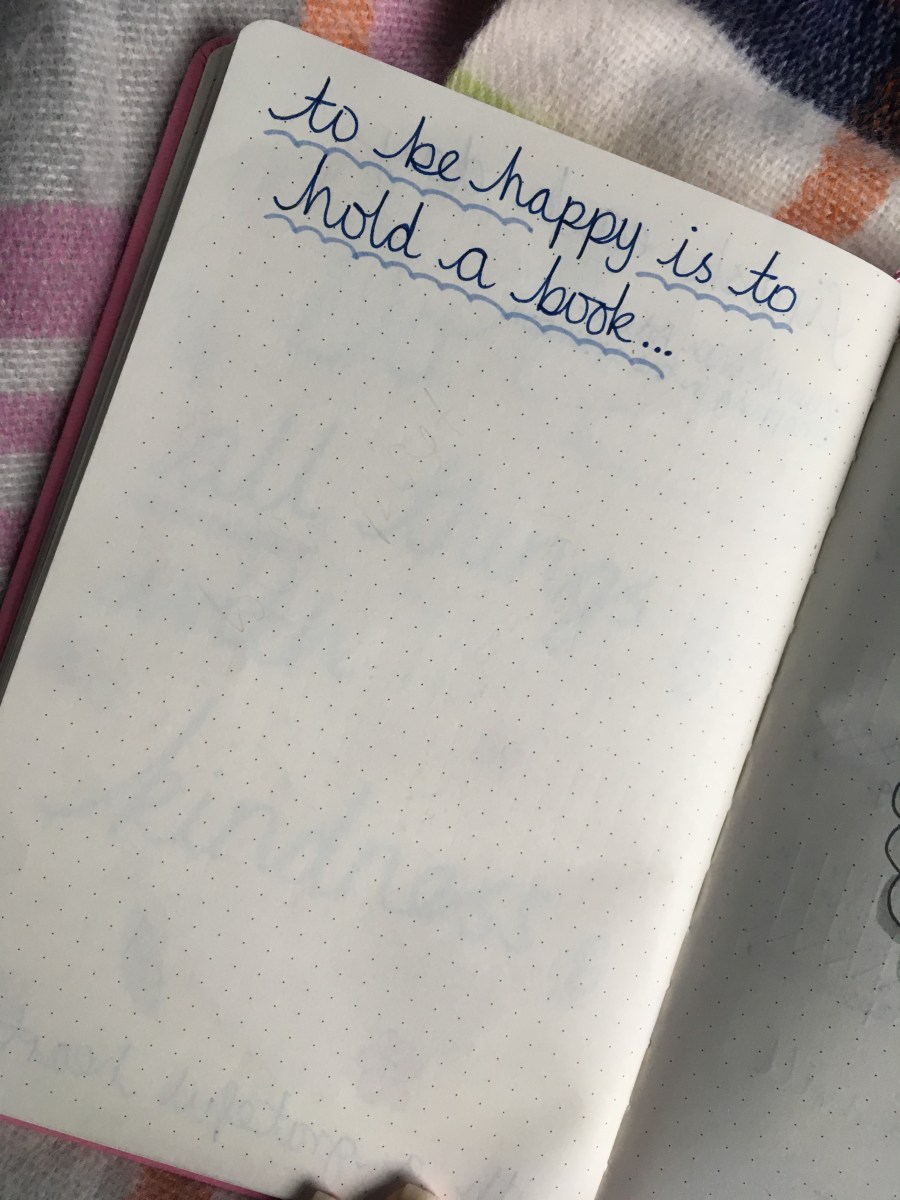 to be happy is to
hold a book...